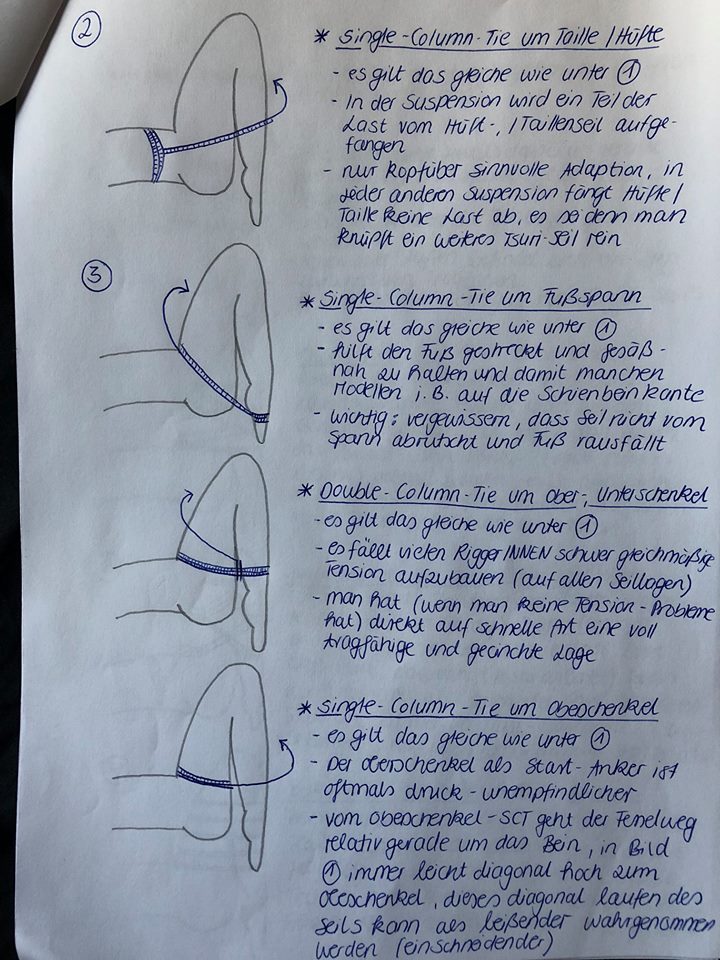 ②
* Single-Column-Tie um Taille/Hüfte
- es gilt das gleiche wie unter ①
- In der Suspension wird ein Teil der
Last vom Hüft-, /Taillenseil aufge-
fangen
- nur kopfüber sinnvolle Adaption, in
jeder anderen Suspension fängt Hüfte/
Taille keine Last ab, es sei denn man
knüpft ein weiteres Tsuri-Seil rein
③
* Single-Column-Tie um Fußspann
- es gilt das gleiche wie unter ①
- hilft den Fuß gestreckt und gesäß-
nah zu halten und damit manchen
Modellen i.B. auf die Schienbeinkante
- wichtig: vergewissern, dass Seil nicht vom
Spann abrutscht und Fuß rausfällt
* Double-Column-Tie um Ober-, Unterschenkel
- es gilt das gleiche wie unter ①
- es fällt vielen RiggerINNEN schwer gleichmäßige
Tension aufzubauen (auf allen Seillagen)
- man hat (wenn man keine Tension-Probleme
hat) direkt auf schnelle Art eine voll
tragfähige und gecinchte Lage
* Single-Column-Tie um Obeschenkel
- es gilt das gleiche wie unter ①
- Der Oberschenkel als Start-Anker ist
oftmals druck-unempfindlicher
- vom Obeschenkel-SCT geht der Femelweg
relativ gerade um das Bein, in Bild
① immer leicht diagonal hoch zum
Obeschenkel, dieses diagonal laufen des
Seils kann als beißender wahrgenommen
werden (einschneidender)